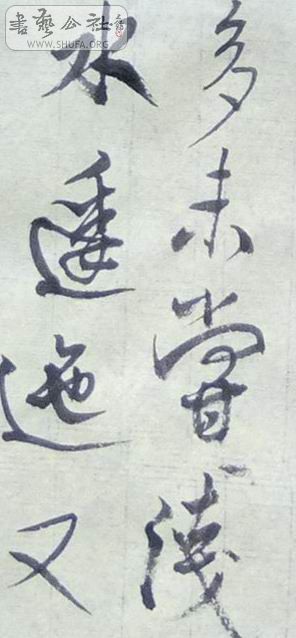 書藝公社
WWW.SHUFA.ORG
多未嘗淺
水逶迤又